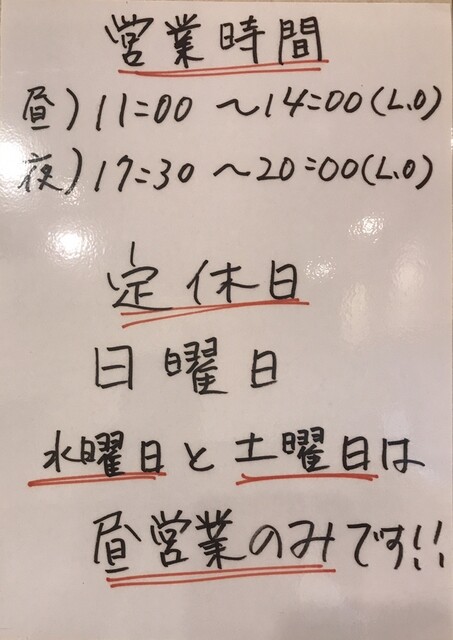 営業時間
昼)11:00 〜14:00(L.O)
夜)17:30 〜20:00(L.O)
定休日
日曜日
水曜日と土曜日は
昼営業のみです!!